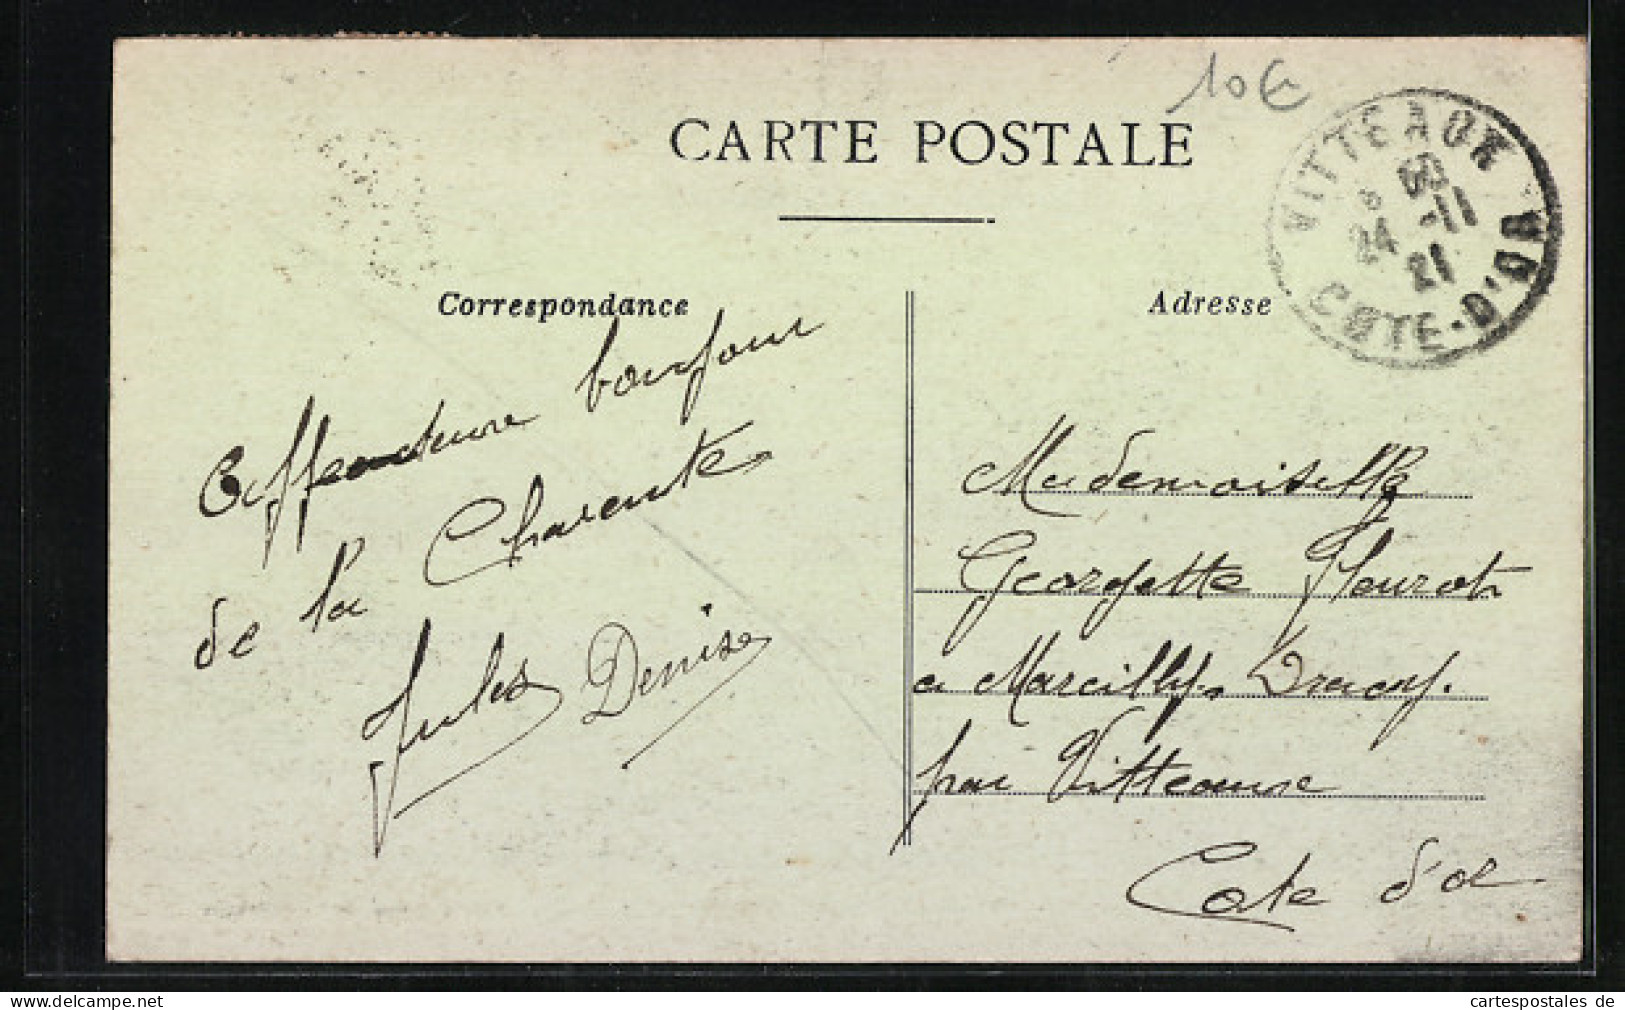 10€
CARTE POSTALE
VITTEAUX
24 -11
21
COTE-D'OR
Correspondance
Adresse
Affectueux bonjour
de la Charente
Jules Denise
Mademoiselle
Georgette Fleurot
a Marcilly. Dracy.
par Vitteaux
Cote d'or
delcampe.net
cartespostales de